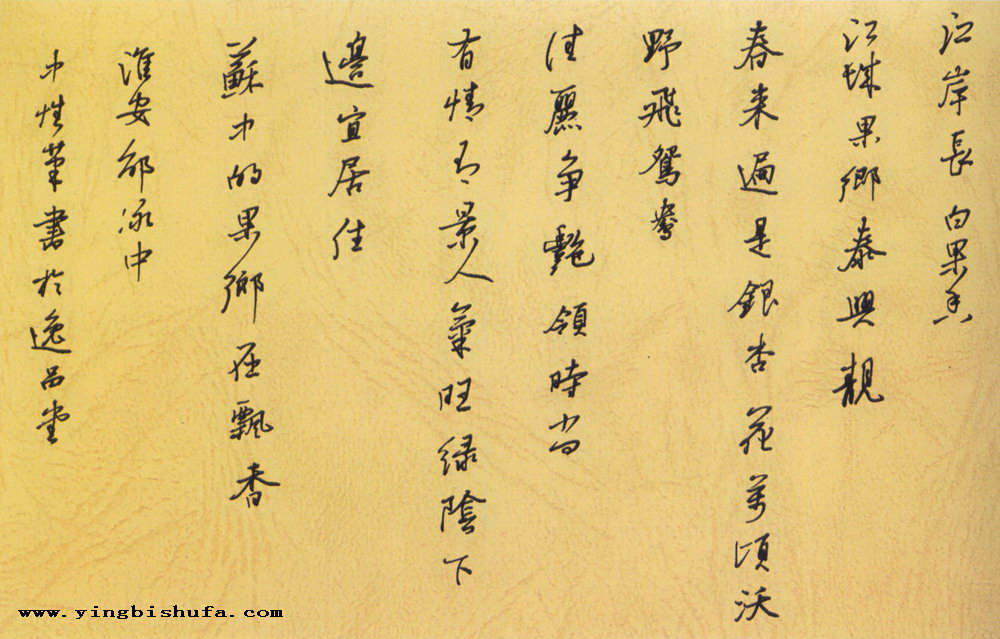 江岸長 白果香
江珠果鄉泰興靚
春来遍是銀杏花萬頃沃
野飛鴛鴦
佳麗争艷領時尚
有情有景人氣旺绿陰下
邊宜居住
蘇中的果鄉在飄香
淮安邰冰中
中性笔書於逸品堂
www.yingbishufa.com